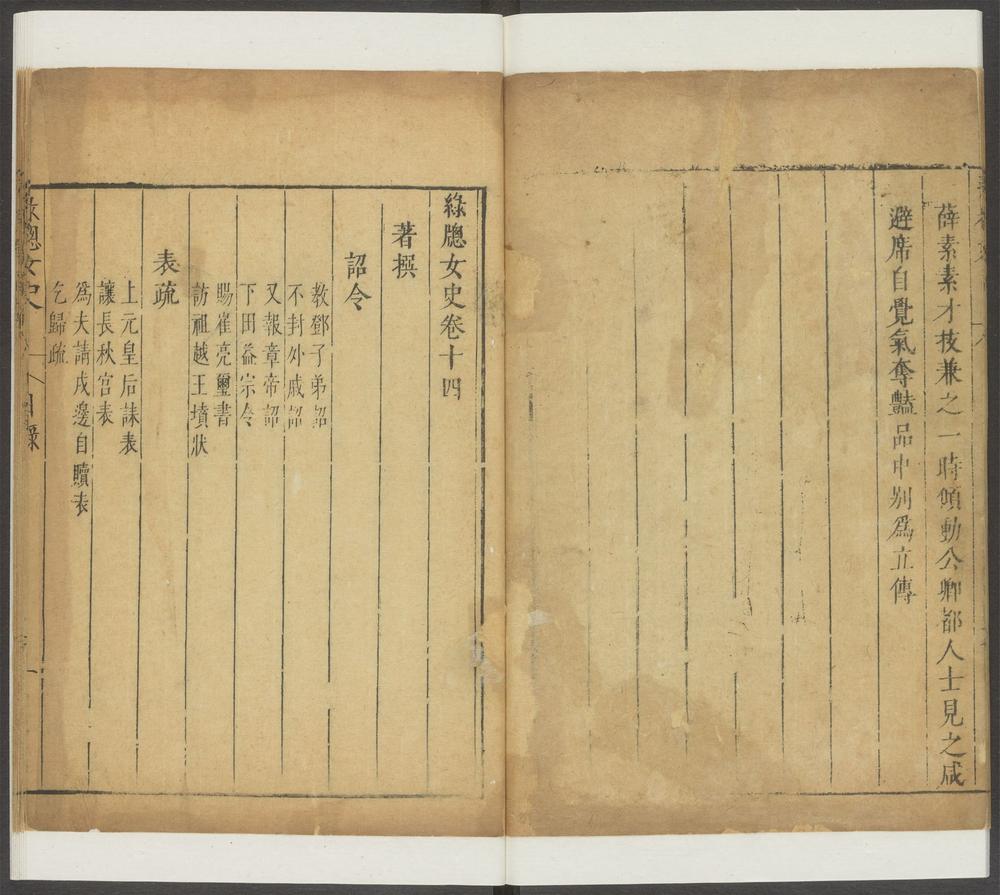 薛素素才技兼之一時傾動公卿都人士見之咸
避席自覺氣奪豔品中别爲立傳
綠牕女史卷十四
著撰
詔令
教鄧子弟詔
不封外戚詔
又報章帝詔
下田益宗令
賜崔亮璽書
訪祖越王墳狀
表疏
上元皇后誄表
讓長秋宫表
爲夫請戍邊自贖表
乞歸疏
綠牕女史
目錄
一